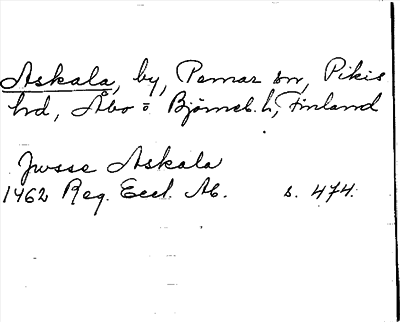 Askala, by, Pemar sn, Pikis
hd, Åbo o Björneb. l, Finland
Jusse Askala
1462 Reg. Eccl. Ab. s. 474.